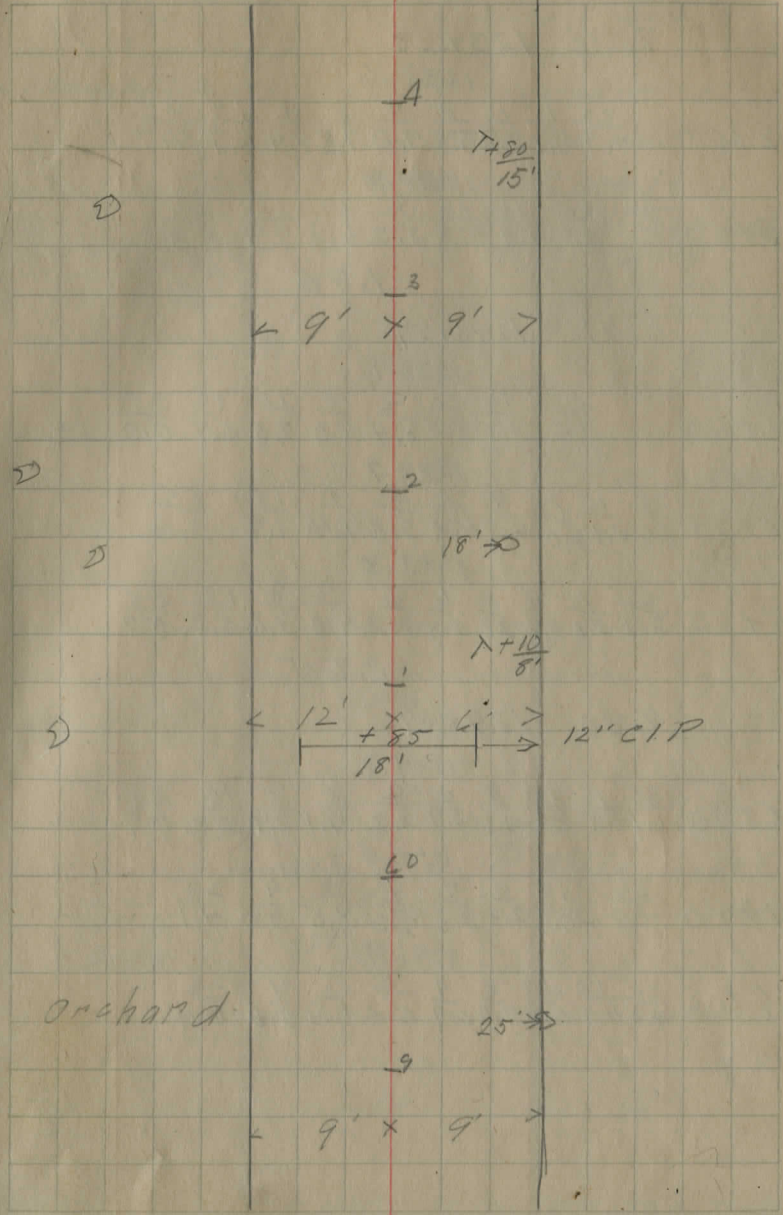 4
T+80
15'
3
9' × 9'
2
18'
+10
8'
1
12' × 6'
+85
18'
12" C.I.P
60
Orchard
25'
9
9' × 9'